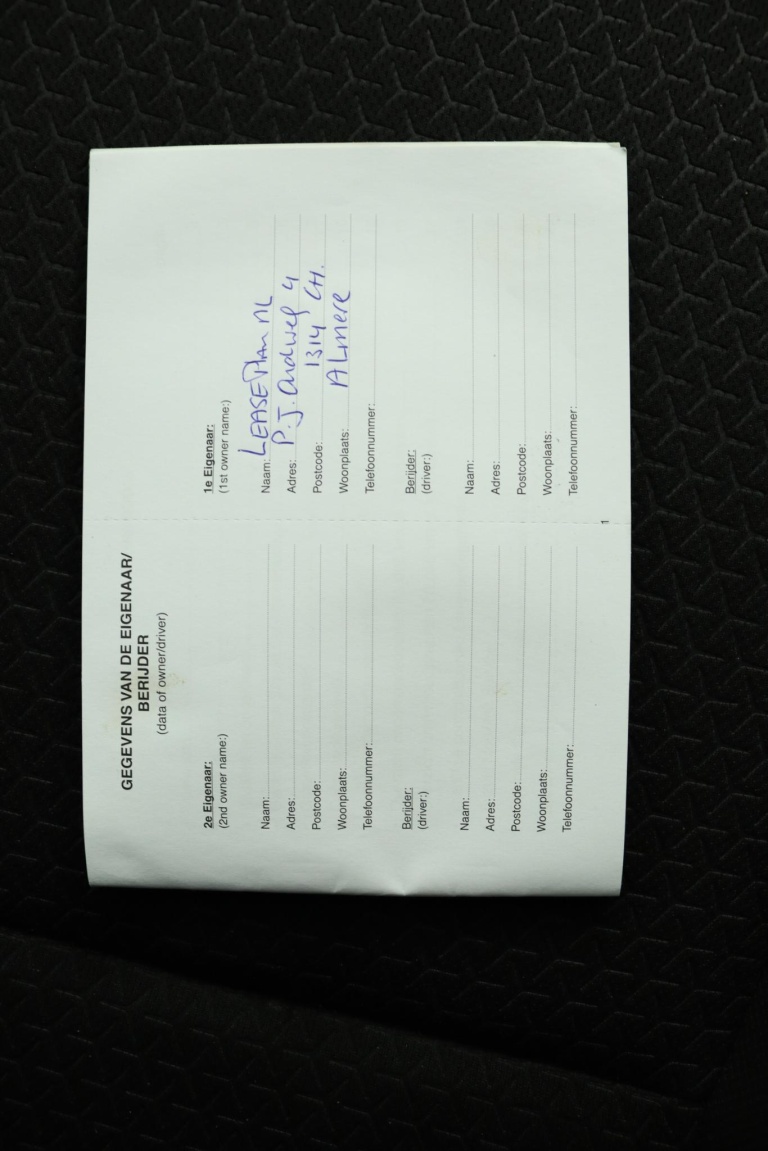 GEGEVENS VAN DE EIGENAAR/
BERIJDER
(data of owner/driver)
2e Eigenaar:
(2nd owner name:)
Naam:
Adres:
Postcode:
Woonplaats:
Telefoonnummer:
Berijder:
(driver:)
Naam:
Adres:
Postcode:
Woonplaats:
Telefoonnummer:
1e Eigenaar:
(1st owner name:)
Naam: LEASEPlan NL
Adres: P.J. Oudweg 4
Postcode: 1314 CH.
Woonplaats: ALmere
Telefoonnummer:
Berijder:
(driver:)
Naam:
Adres:
Postcode:
Woonplaats:
Telefoonnummer:
1